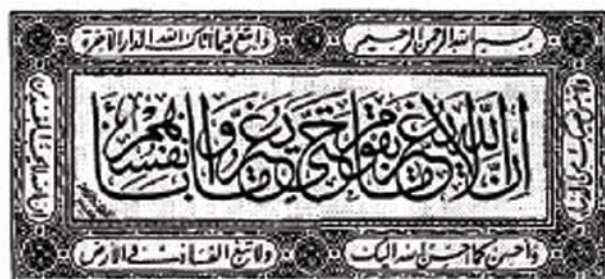 بسم الله الرحمن الرحيم
وابتغ فيما آتاك الله الدار الآخرة
ان الله لا يغير ما بقوم حتى يغيروا ما بانفسهم
وأحسن كما أحسن الله اليك
ولا تبغ الفساد في الأرض